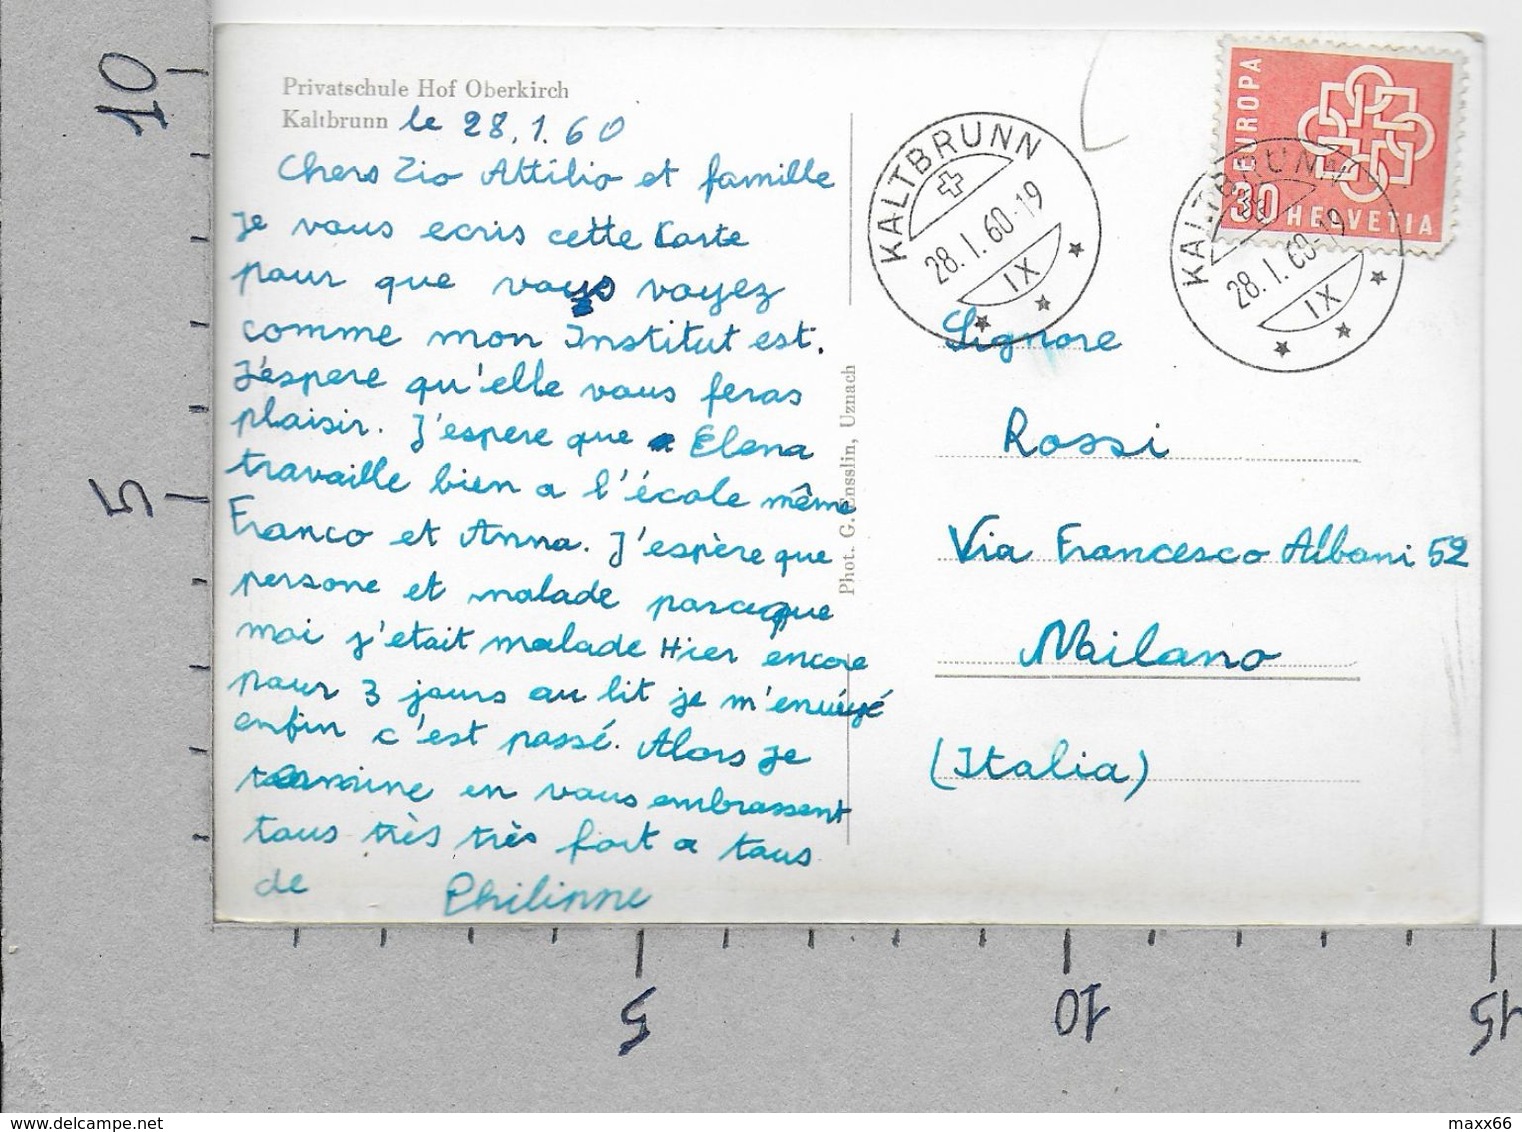 Privatschule Hof Oberkirch
Kaltbrunn le 28.1.60
Chers Zio Attilio et famille
Je vous ecris cette Carte
pour que vous voyez
comme mon Institut est.
J'éspere qu'elle vous feras
plaisir. J'espere que Elena
travaille bien a l'école même
Franco et Anna. J'espère que
persone et malade parceque
moi j'etait malade Hier encore
pour 3 jours au lit je
enfin c'est passé. Alors je
termine en vous embrassent
tous très très fort a tous
de Philippe
Phot. G. Ensslin, Uznach
KALTBRUNN
28.I.60-19
IX
KALTBRUNN
28.I.60-19
IX
EUROPA
30 HELVETIA
Signore
Rossi
Via Francesco Albani 52
Milano
(Italia)
10
5
5
10
15
delcampe.net
maxx66